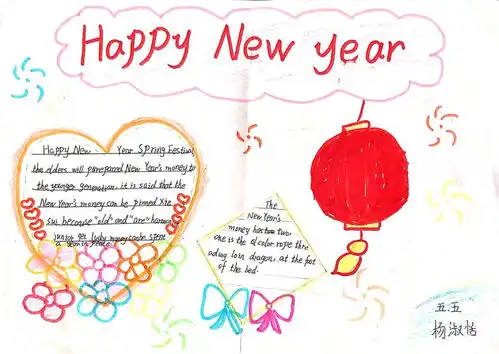 Happy New year
Happy New Year Spring Festival
the elders will prepared New Year's money to
the younger generation. it is said that the
New Year's money can be pimed Xie
sui because "old" and "are" homon
junior get lucky money can be spent
a year in peace
The
New Year's
money has two
one is the of color rope thre
ading loin dragon at the foot
of the bed.
五.五
杨淑恬